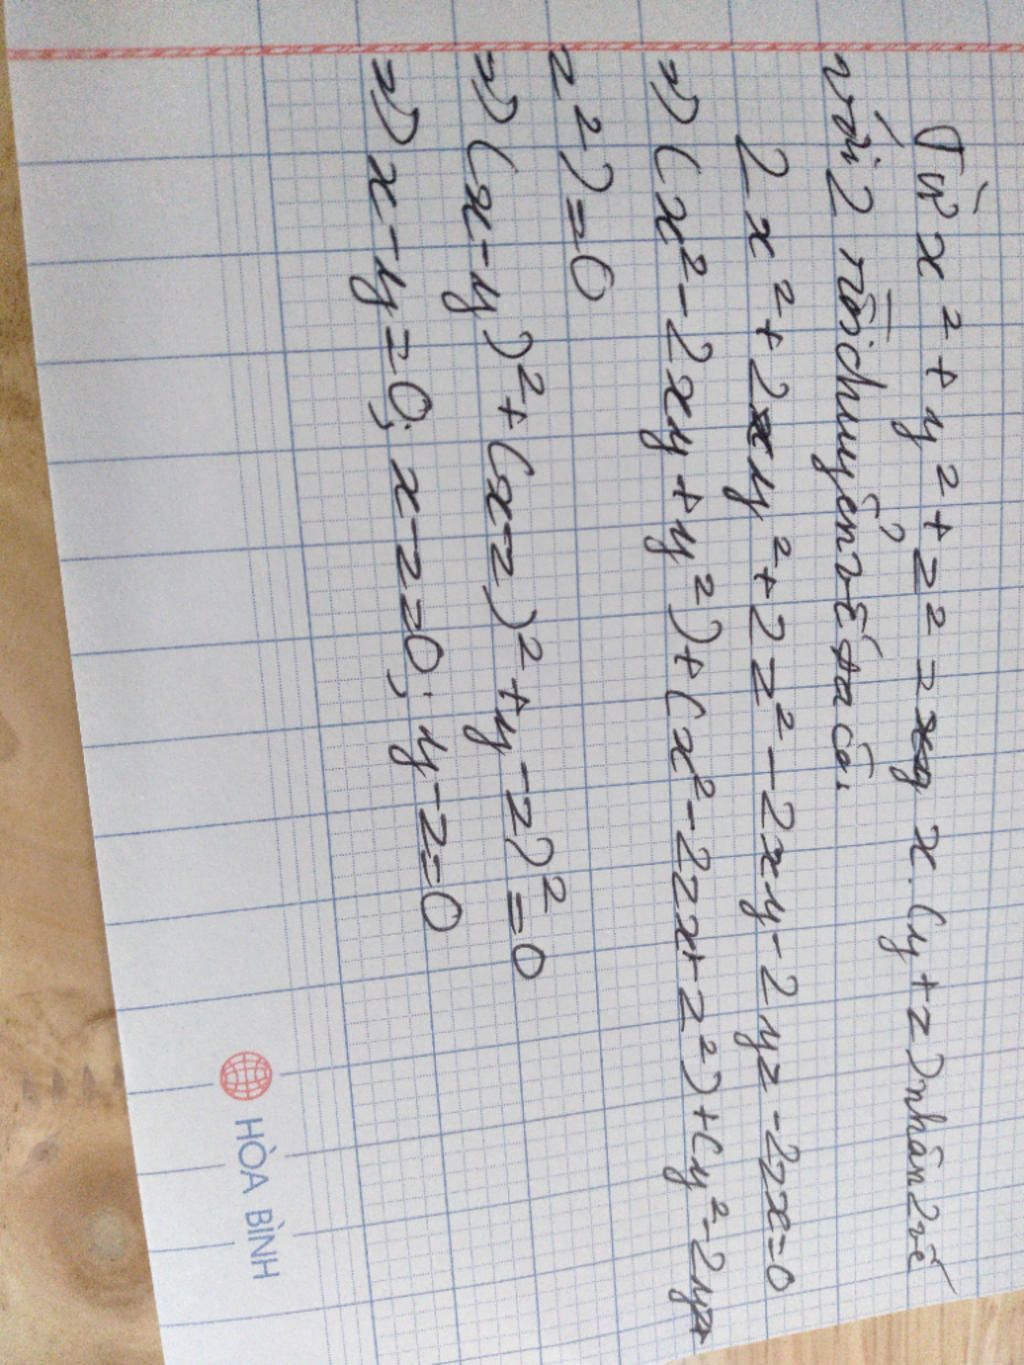 Từ x² + y² + z² = x.(y+z) nhân 2 vế
với 2 rồi chuyển vế ta có:
2x² + 2y² + 2z² - 2xy - 2yz - 2zx = 0
=> (x² - 2xy + y²) + (x² - 2zx + z²) + (y² - 2yz +
z²) = 0
=> (x-y)² + (x-z)² + y-z)² = 0
=> x-y=0; x-z=0; y-z=0
HÒA BÌNH